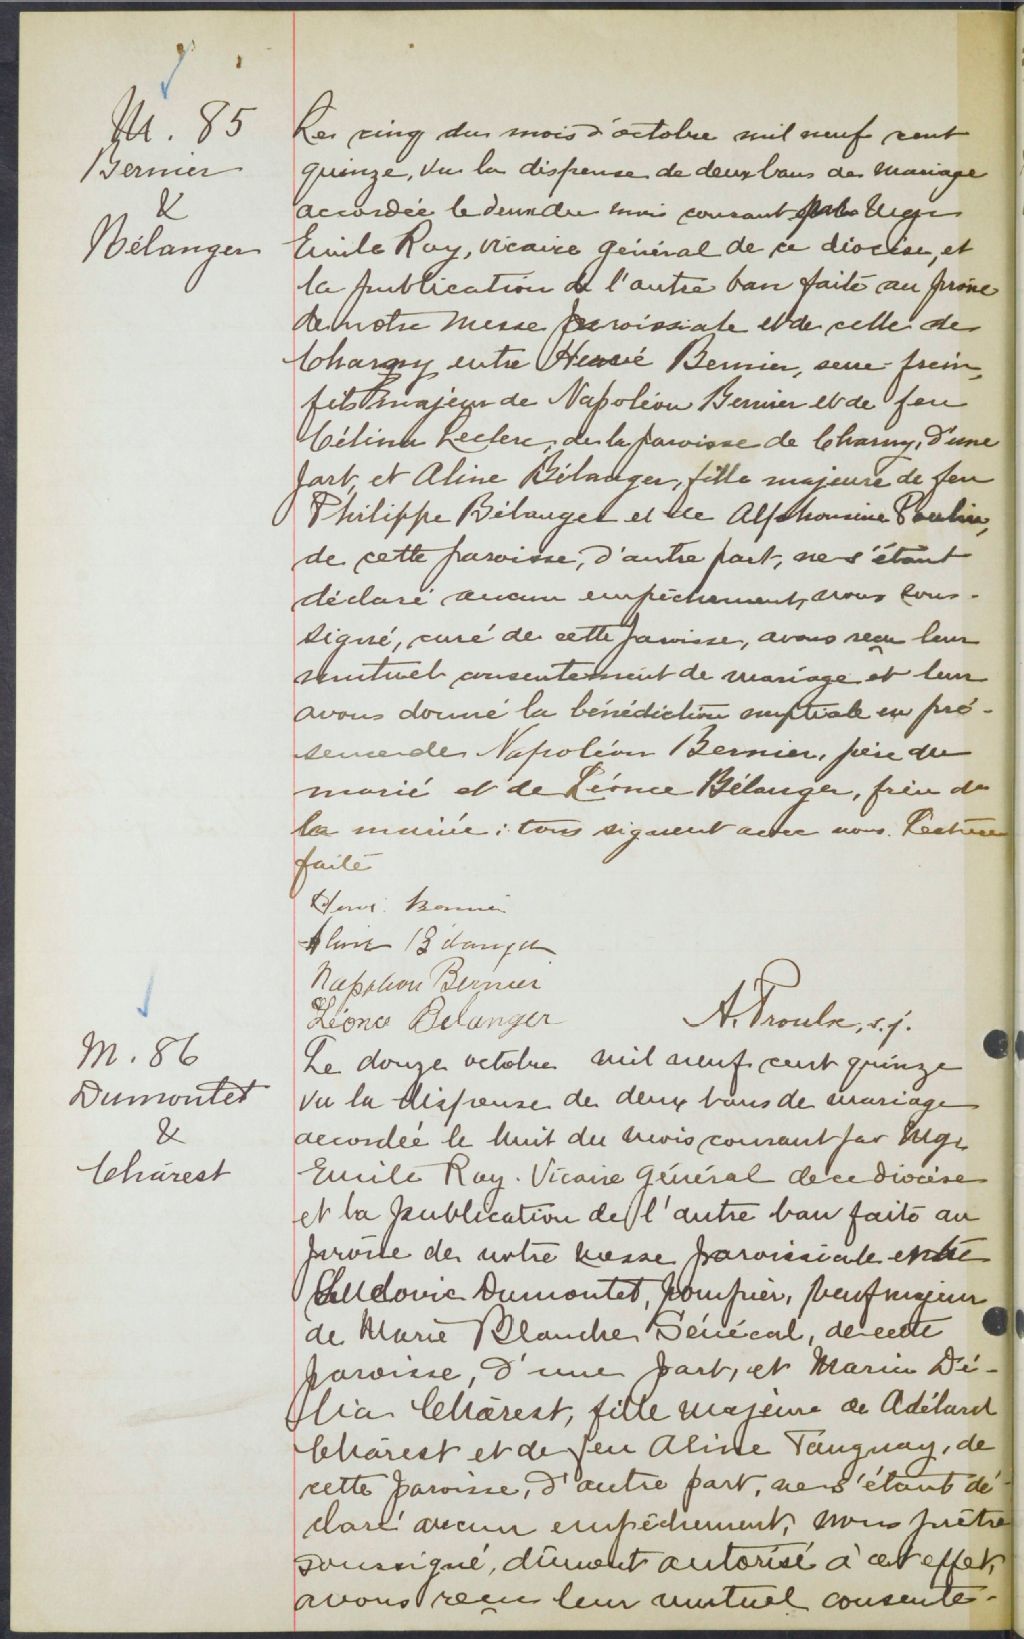 M. 85
Bernier
&
Bélanger
Le cinq du mois d'octobre mil neuf cent
quinze, vu la dispense de deux bans de mariage
accordée le deux du mois courant par Mgr
Emile Roy, vicaire général de ce diocèse, et
la publication de l'autre ban faite au prône
de notre messe paroissiale et de celle de
Charny entre Bernier, serre-frein,
fils majeur de Napoléon Bernier et de feu
Célina Leclerc, de la paroisse de Charny, d'une
part, et Aline Bélanger, fille majeure de feu
Philippe Bélanger et de Alphonsine Poulin,
de cette paroisse, d'autre part, ne s'étant
déclaré aucun empêchement, nous sous-
signé, curé de cette paroisse, avons reçu leur
mutuel consentement de mariage et leur
avons donné la bénédiction nuptiale en pré-
sence de Napoléon Bernier, père du
marié et de Léonce Bélanger, frère de
la mariée : tous signent avec nous. Lecture
faite
Henri Bernier
Aline Bélanger
Napoléon Bernier
Léonce Belanger
A. Proulx, s.j.
M. 86
Dumontet
&
Chârest
Le douze octobre mil neuf cent quinze
vu la dispense de deux bans de mariage
accordée le huit du mois courant par Mgr
Emile Roy. Vicaire Général de ce diocèse
et la publication de l'autre ban faite au
prône de notre messe paroissiale entre
Ludovic Dumontet, pompier, veuf majeur
de Marie Blanche Sénécal, de cette
paroisse, d'une part, et Maria Dé-
lia Chârest, fille majeure de Adélard
Chârest et de feu Aline Tanguay, de
cette paroisse, d'autre part, ne s'étant dé-
claré aucun empêchement, nous prêtre
soussigné, dûment autorisé à cet effet,
avons reçu leur mutuel consente-